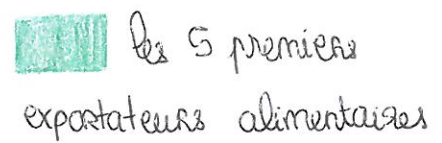 les 5 premiers
exportateurs alimentaires